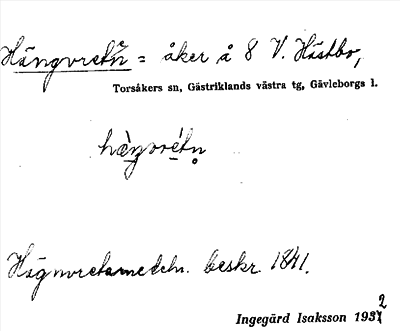 Hängvretn = åker å 8 V. Hästbo,
Torsåkers sn, Gästriklands västra tg, Gävleborgs l.
hæ̀ŋvré̱tn̥
beskr. 1841.
Ingegärd Isaksson 1932